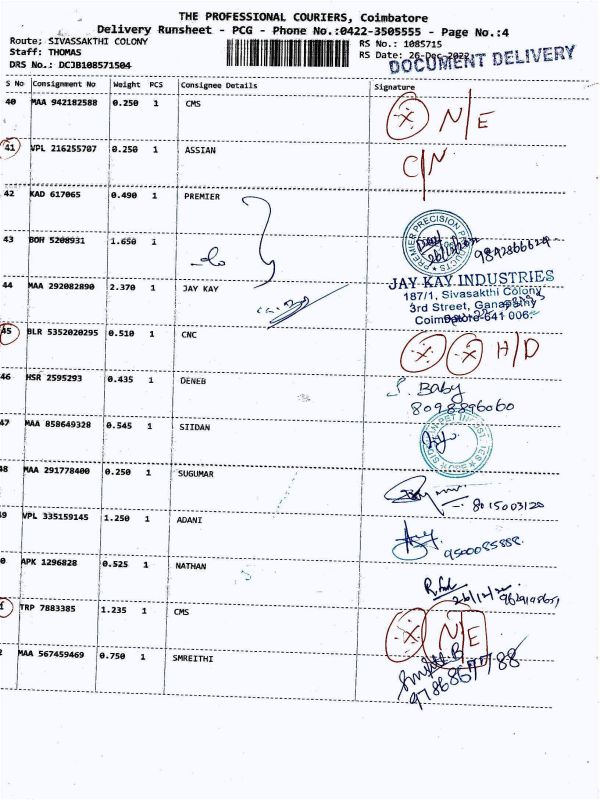 THE PROFESSIONAL COURIERS, Coimbatore
Delivery Runsheet - PCG - Phone No.:0422-3505555 - Page No.:4
Route; SIVASSAKTHI COLONY
RS No.: 1085715
Staff: THOMAS
RS Date: 26-Dec-2022
DRS No.: DCJB108571504
DOCUMENT DELIVERY
S No Consignment No Weight PCS Consignee Details Signature
40 MAA 942182588 0.250 1 CMS N/E
41 VPL 216255707 0.250 1 ASSIAN C/N
42 KAD 617065 0.490 1 PREMIER
PREMIER PRECISION PRODUCTS
43 BOH 5208931 1.650 1
44 MAA 292082890 2.370 1 JAY KAY
JAY KAY INDUSTRIES
187/1, Sivasakthi Colony
3rd Street, Ganapathy
Coimbatore-641 006.
45 BLR 5352020295 0.510 1 CNC H/D
46 HSR 2595293 0.435 1 DENEB
Baby
8098896060
47 MAA 858649328 0.545 1 SIIDAN
48 MAA 291778400 0.250 1 SUGUMAR
8015003120
49 VPL 335159145 1.250 1 ADANI
9500085888
0 APK 1296828 0.525 1 NATHAN
26/12/22
1 TRP 7883385 1.235 1 CMS N/E
2 MAA 567459469 0.750 1 SMREITHI